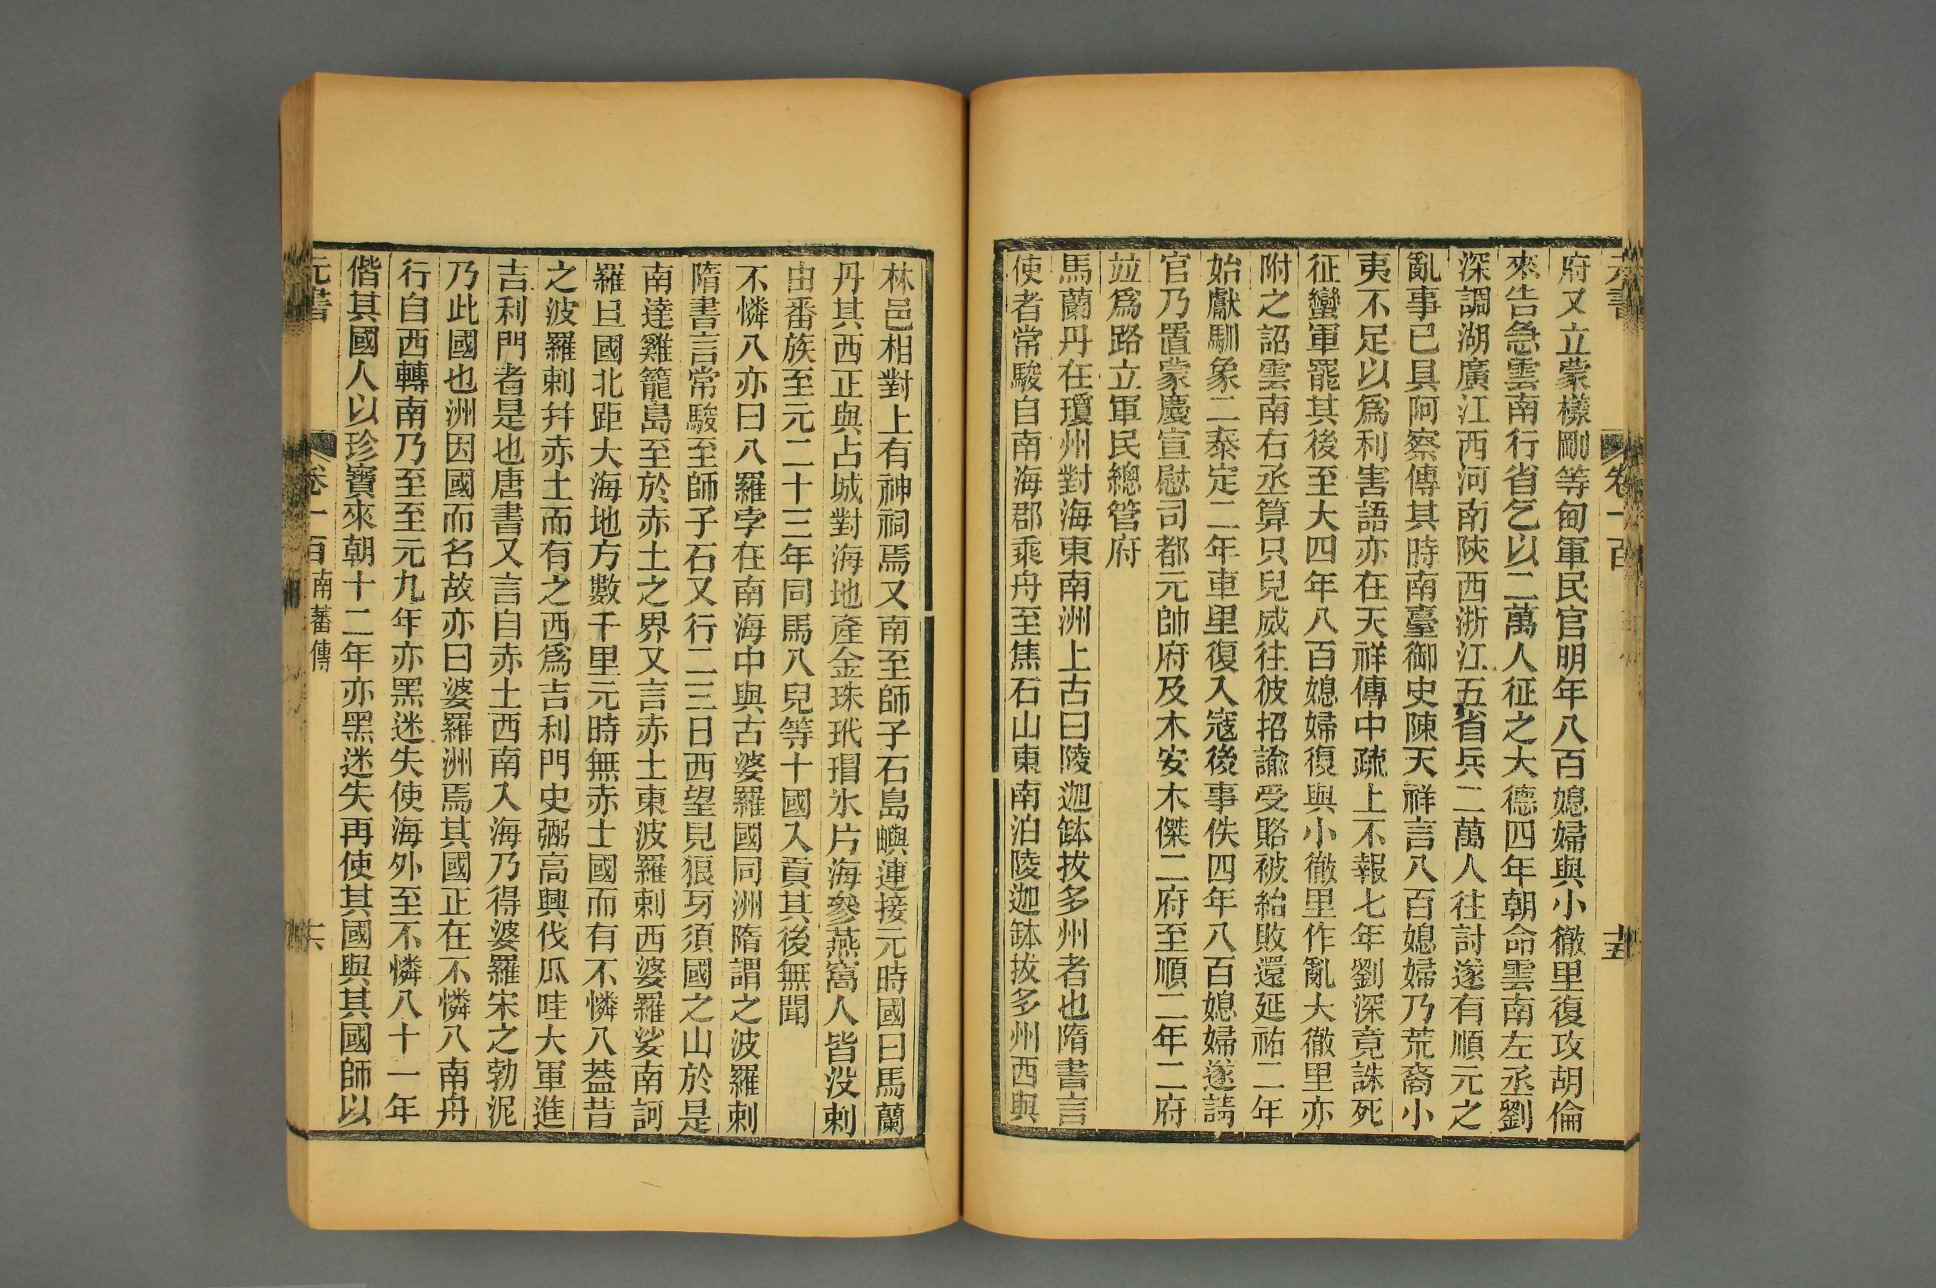 元書
卷一百
十五
府又立蒙樣剛等甸軍民官明年八百媳婦與小徹里復攻胡倫
來告急雲南行省乞以二萬人征之大德四年朝命雲南左丞劉
深調湖廣江西河南陝西浙江五省兵二萬人往討遂有順元之
亂事已具阿察傳其時南臺御史陳天祥言八百媳婦乃荒裔小
夷不足以爲利害語亦在天祥傳中疏上不報七年劉深竟誅死
征蠻軍罷其後至大四年八百媳婦復與小徹里作亂大徹里亦
附之詔雲南右丞算只兒威往彼招諭受賂被紿敗還延祐二年
始獻馴象二泰定二年車里復入寇後事佚四年八百媳婦遂請
官乃置蒙慶宣慰司都元帥府及木安木傑二府至順二年二府
竝爲路立軍民總管府
馬蘭丹在瓊州對海東南洲上古曰陵迦缽拔多州者也隋書言
使者常駿自南海郡乘舟至焦石山東南泊陵迦缽拔多州西與
林邑相對上有神祠焉又南至師子石島嶼連接元時國曰馬蘭
丹其西正與占城對海地產金珠玳瑁氷片海參燕窩人皆沒剌
由番族至元二十三年同馬八兒等十國入貢其後無聞
不憐八亦曰八羅孛在南海中與古婆羅國同洲隋謂之波羅剌
隋書言常駿至師子石又行二三日西望見狼牙須國之山於是
南達雞籠島至於赤土之界又言赤土東波羅剌西婆羅娑南訶
羅旦國北距大海地方數千里元時無赤土國而有不憐八葢昔
之波羅剌幷赤土而有之西爲吉利門史弼高興伐瓜哇大軍進
吉利門者是也唐書又言自赤土西南入海乃得婆羅宋之勃泥
乃此國也洲因國而名故亦曰婆羅洲焉其國正在不憐八南舟
行自西轉南乃至至元九年亦黑迷失使海外至不憐八十一年
偕其國人以珍寶來朝十二年亦黑迷失再使其國與其國師以
元書
卷一百 南蕃傳
十六